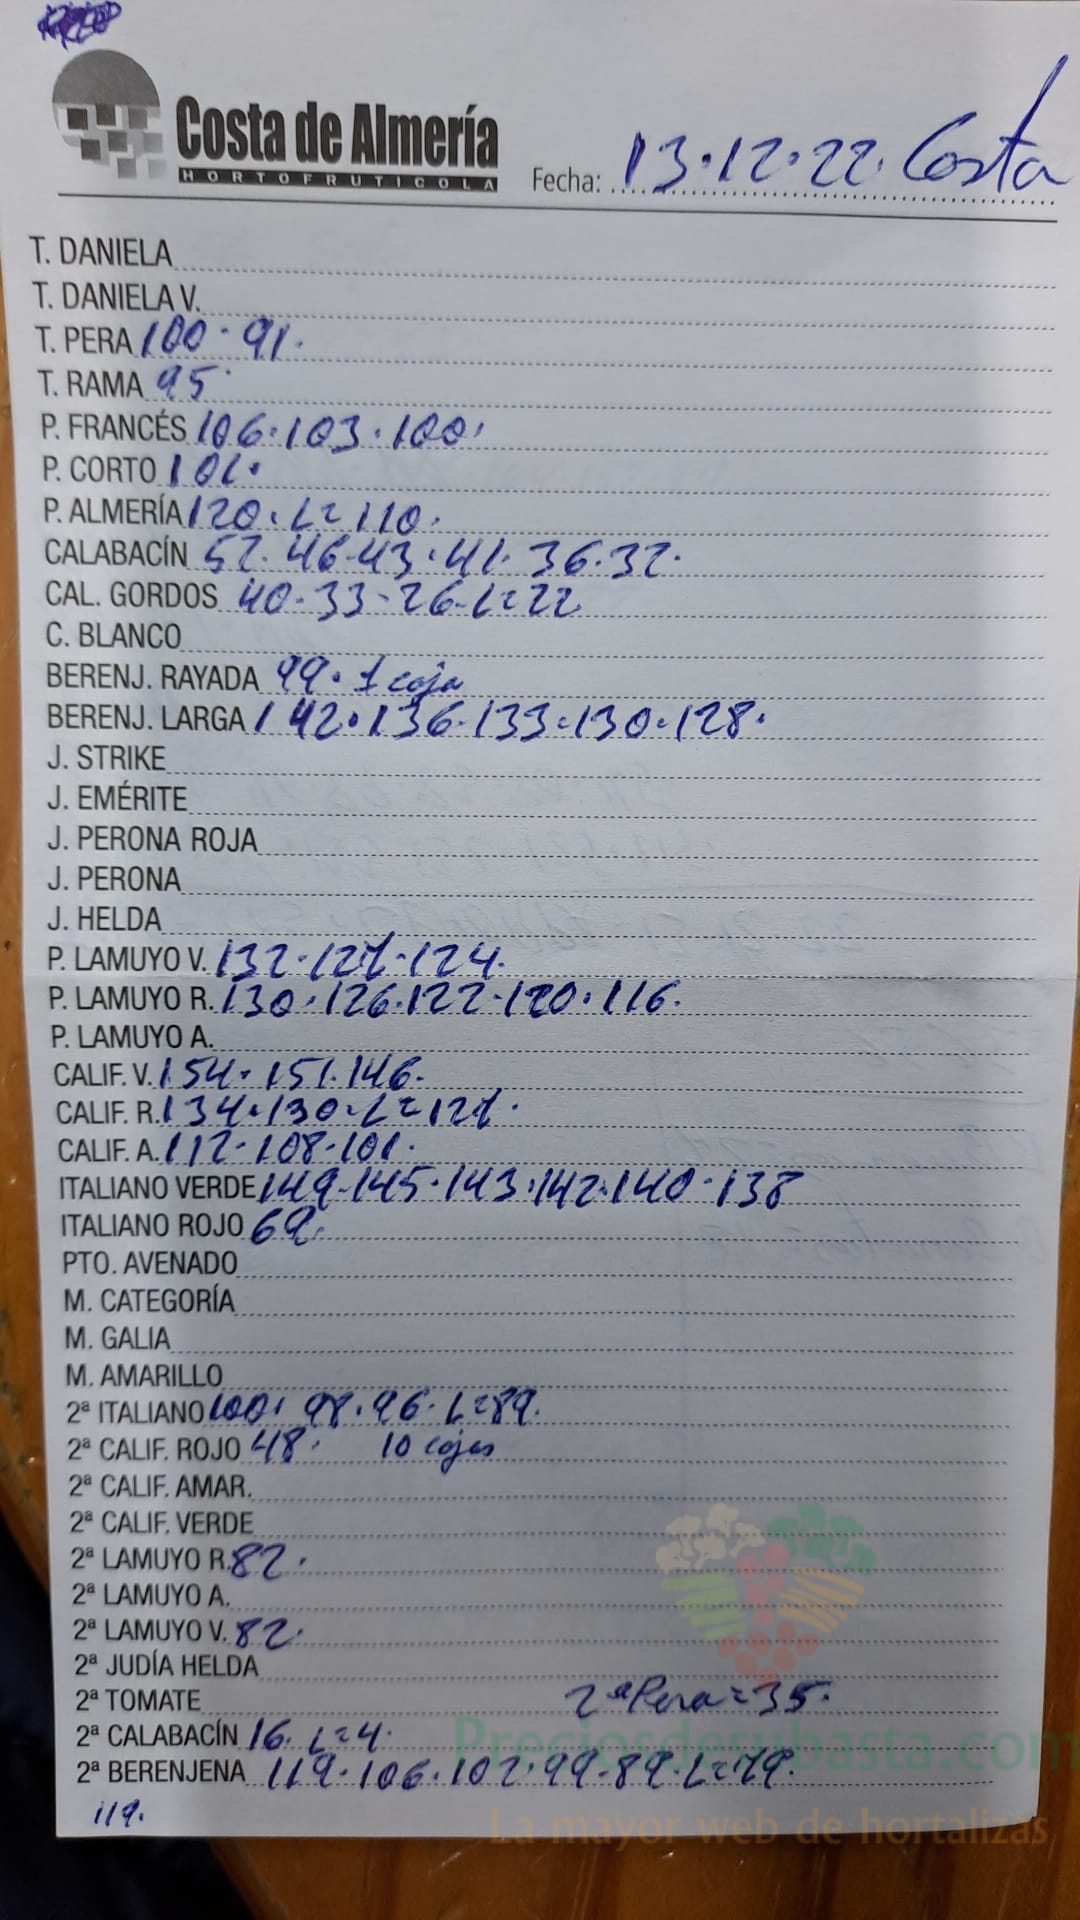 Costa de Almería
HORTOFRUTICOLA
Fecha: 13.12.22. Costa
T. DANIELA
T. DANIELA V.
T. PERA 100 . 91.
T. RAMA 95
P. FRANCÉS 106.103.100.
P. CORTO 101.
P. ALMERÍA 120. L=110.
CALABACÍN 52.46.43.41.36.32.
CAL. GORDOS 40-33-26-L=22
C. BLANCO
BERENJ. RAYADA 99. 1 caja
BERENJ. LARGA 142.136.133.130.128.
J. STRIKE
J. EMÉRITE
J. PERONA ROJA
J. PERONA
J. HELDA
P. LAMUYO V. 132.127.124.
P. LAMUYO R. 130.126.122.120.116.
P. LAMUYO A.
CALIF. V. 154.151.146.
CALIF. R. 134.130.L=127.
CALIF. A. 112.108.101.
ITALIANO VERDE 149.145.143.142.140.138
ITALIANO ROJO 69.
PTO. AVENADO
M. CATEGORÍA
M. GALIA
M. AMARILLO
2ª ITALIANO 100. 98.96. L=89.
2ª CALIF. ROJO 48. 10 cajas
2ª CALIF. AMAR.
2ª CALIF. VERDE
2ª LAMUYO R. 82.
2ª LAMUYO A.
2ª LAMUYO V. 82.
2ª JUDÍA HELDA
2ª TOMATE 2ª Pera=35.
2ª CALABACÍN 16. L=4.
2ª BERENJENA 119.106.102.99.89.L=79.
119.
Preciosdesubasta.com
La mayor web de hortalizas